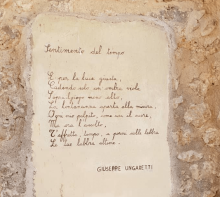 Sentimento del tempo
E per la luce giusta,
Cadendo solo un'ombra viola
Sopra il giogo meno alto,
La lontananza aperta alla misura,
Ogni mio palpito, come usa il cuore,
Ma ora l'ascolto,
T'affretta, tempo, a pormi sulle labbra
Le tue labbra ultime.
GIUSEPPE UNGARETTI